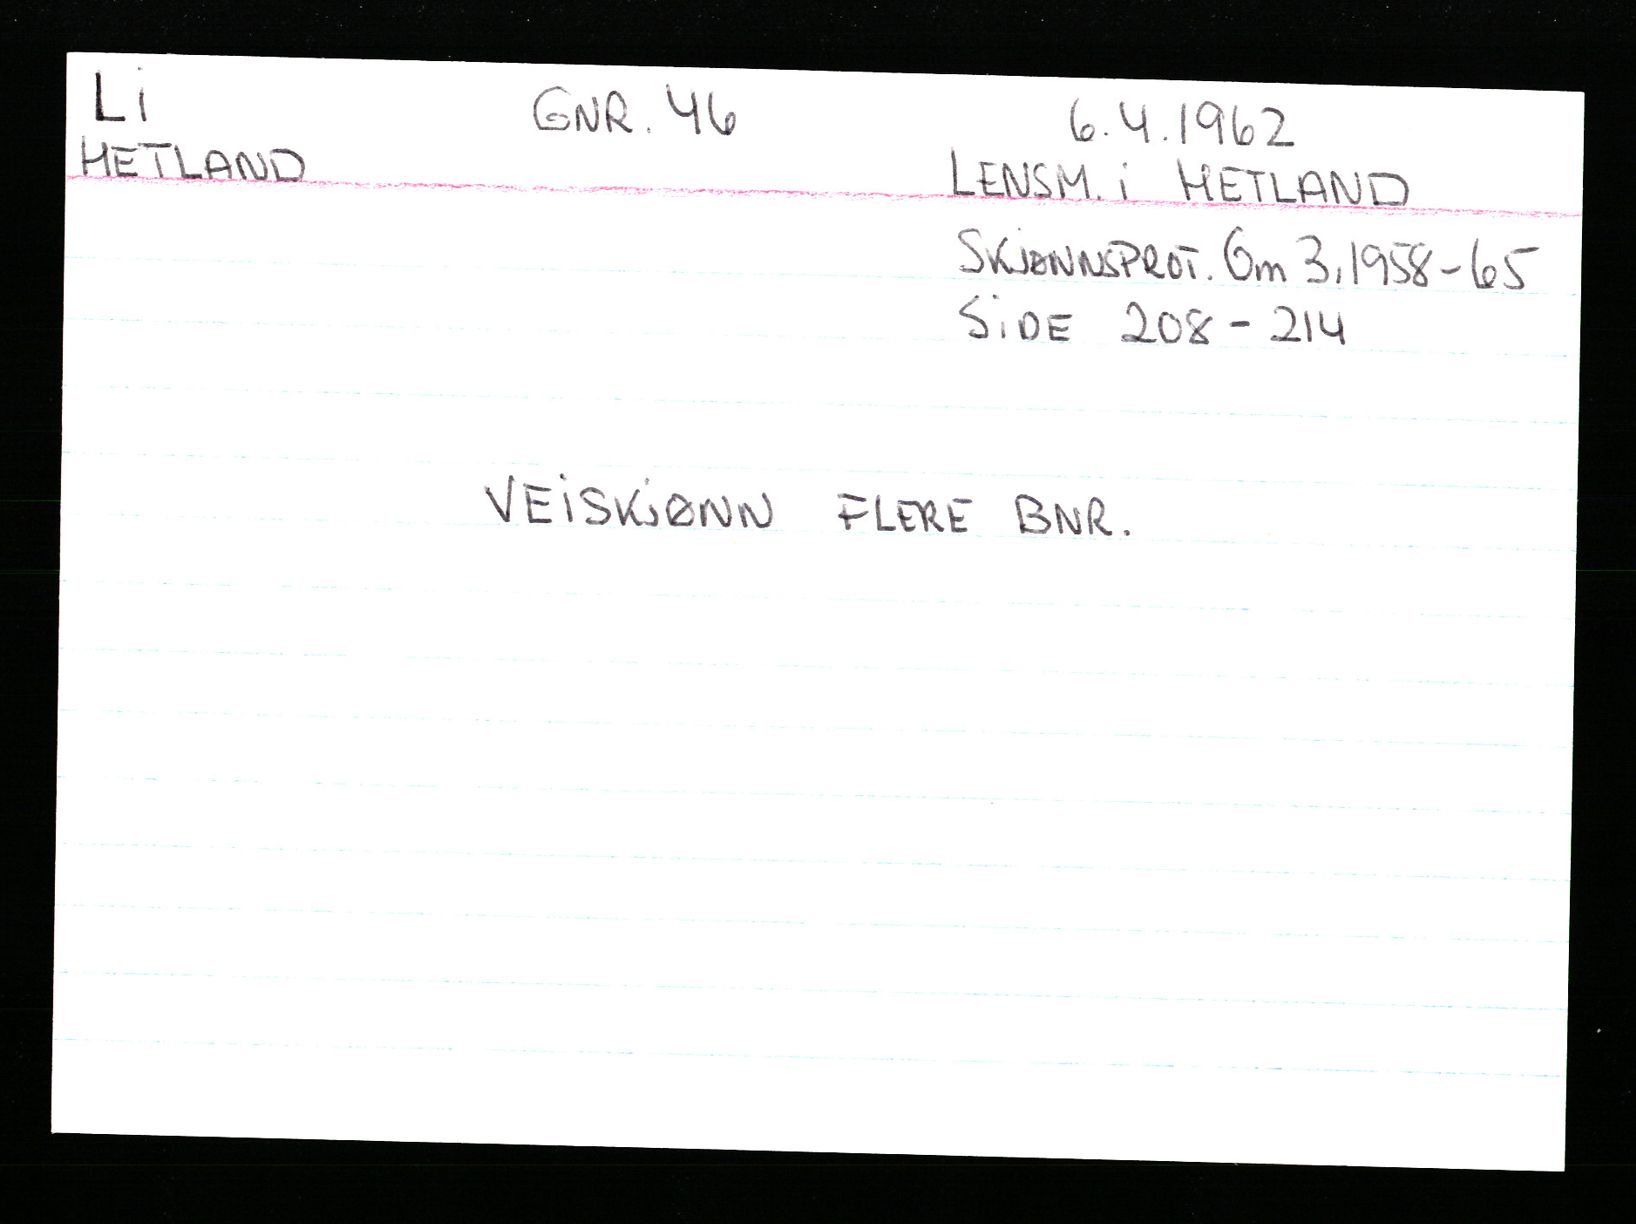 Li GNR. 46 6.4.1962
HETLAND LENSM. i HETLAND
SKJØNNSPROT. Gm 3, 1958-65
SIDE 208-214
VEISKJØNN FLERE BNR.